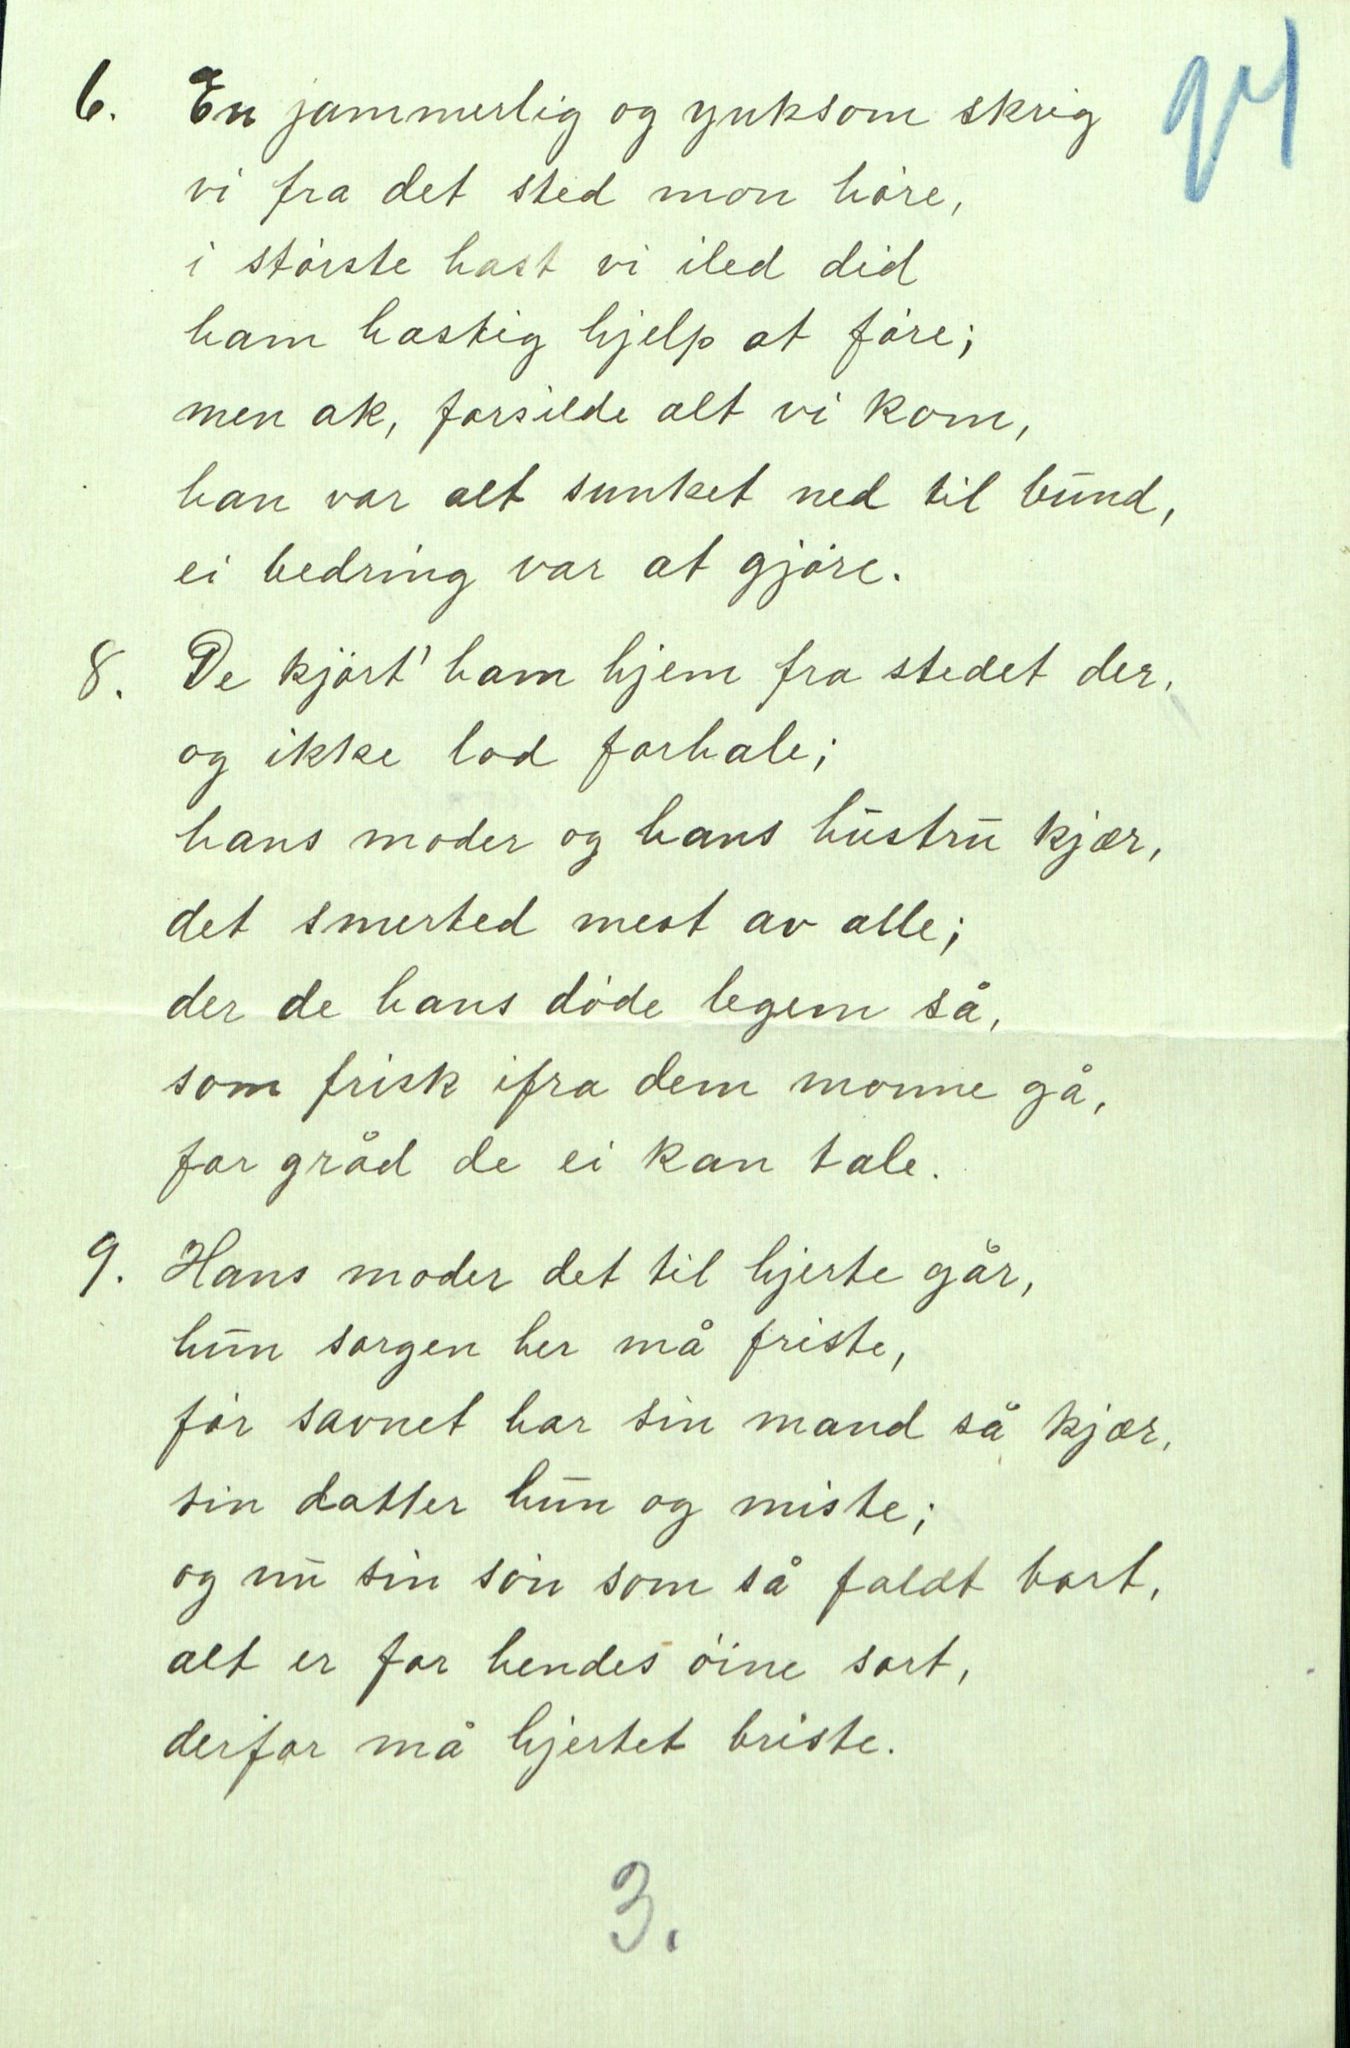 6. En jammerlig og ynksom skrig
vi fra det sted mon høre,
i største hast vi iled did
ham hastig hjelp at føre;
men ak, forsilde alt vi kom,
han var alt sunket ned til bund,
ei bedring var at gjøre.
8. De kjørt' ham hjem fra stedet der,
og ikke lod forhale;
hans moder og hans hustru kjær,
det smerted mest av alle;
der de hans døde legem så,
som frisk ifra dem monne gå,
for gråd de ei kan tale.
9. Hans moder det til hjerte går,
hun sorgen her må friste,
før savnet har sin mand så kjær,
sin datter hun og miste;
og nu sin søn som så faldt bort,
alt er for hendes øine sort,
derfor må hjertet briste.
3.